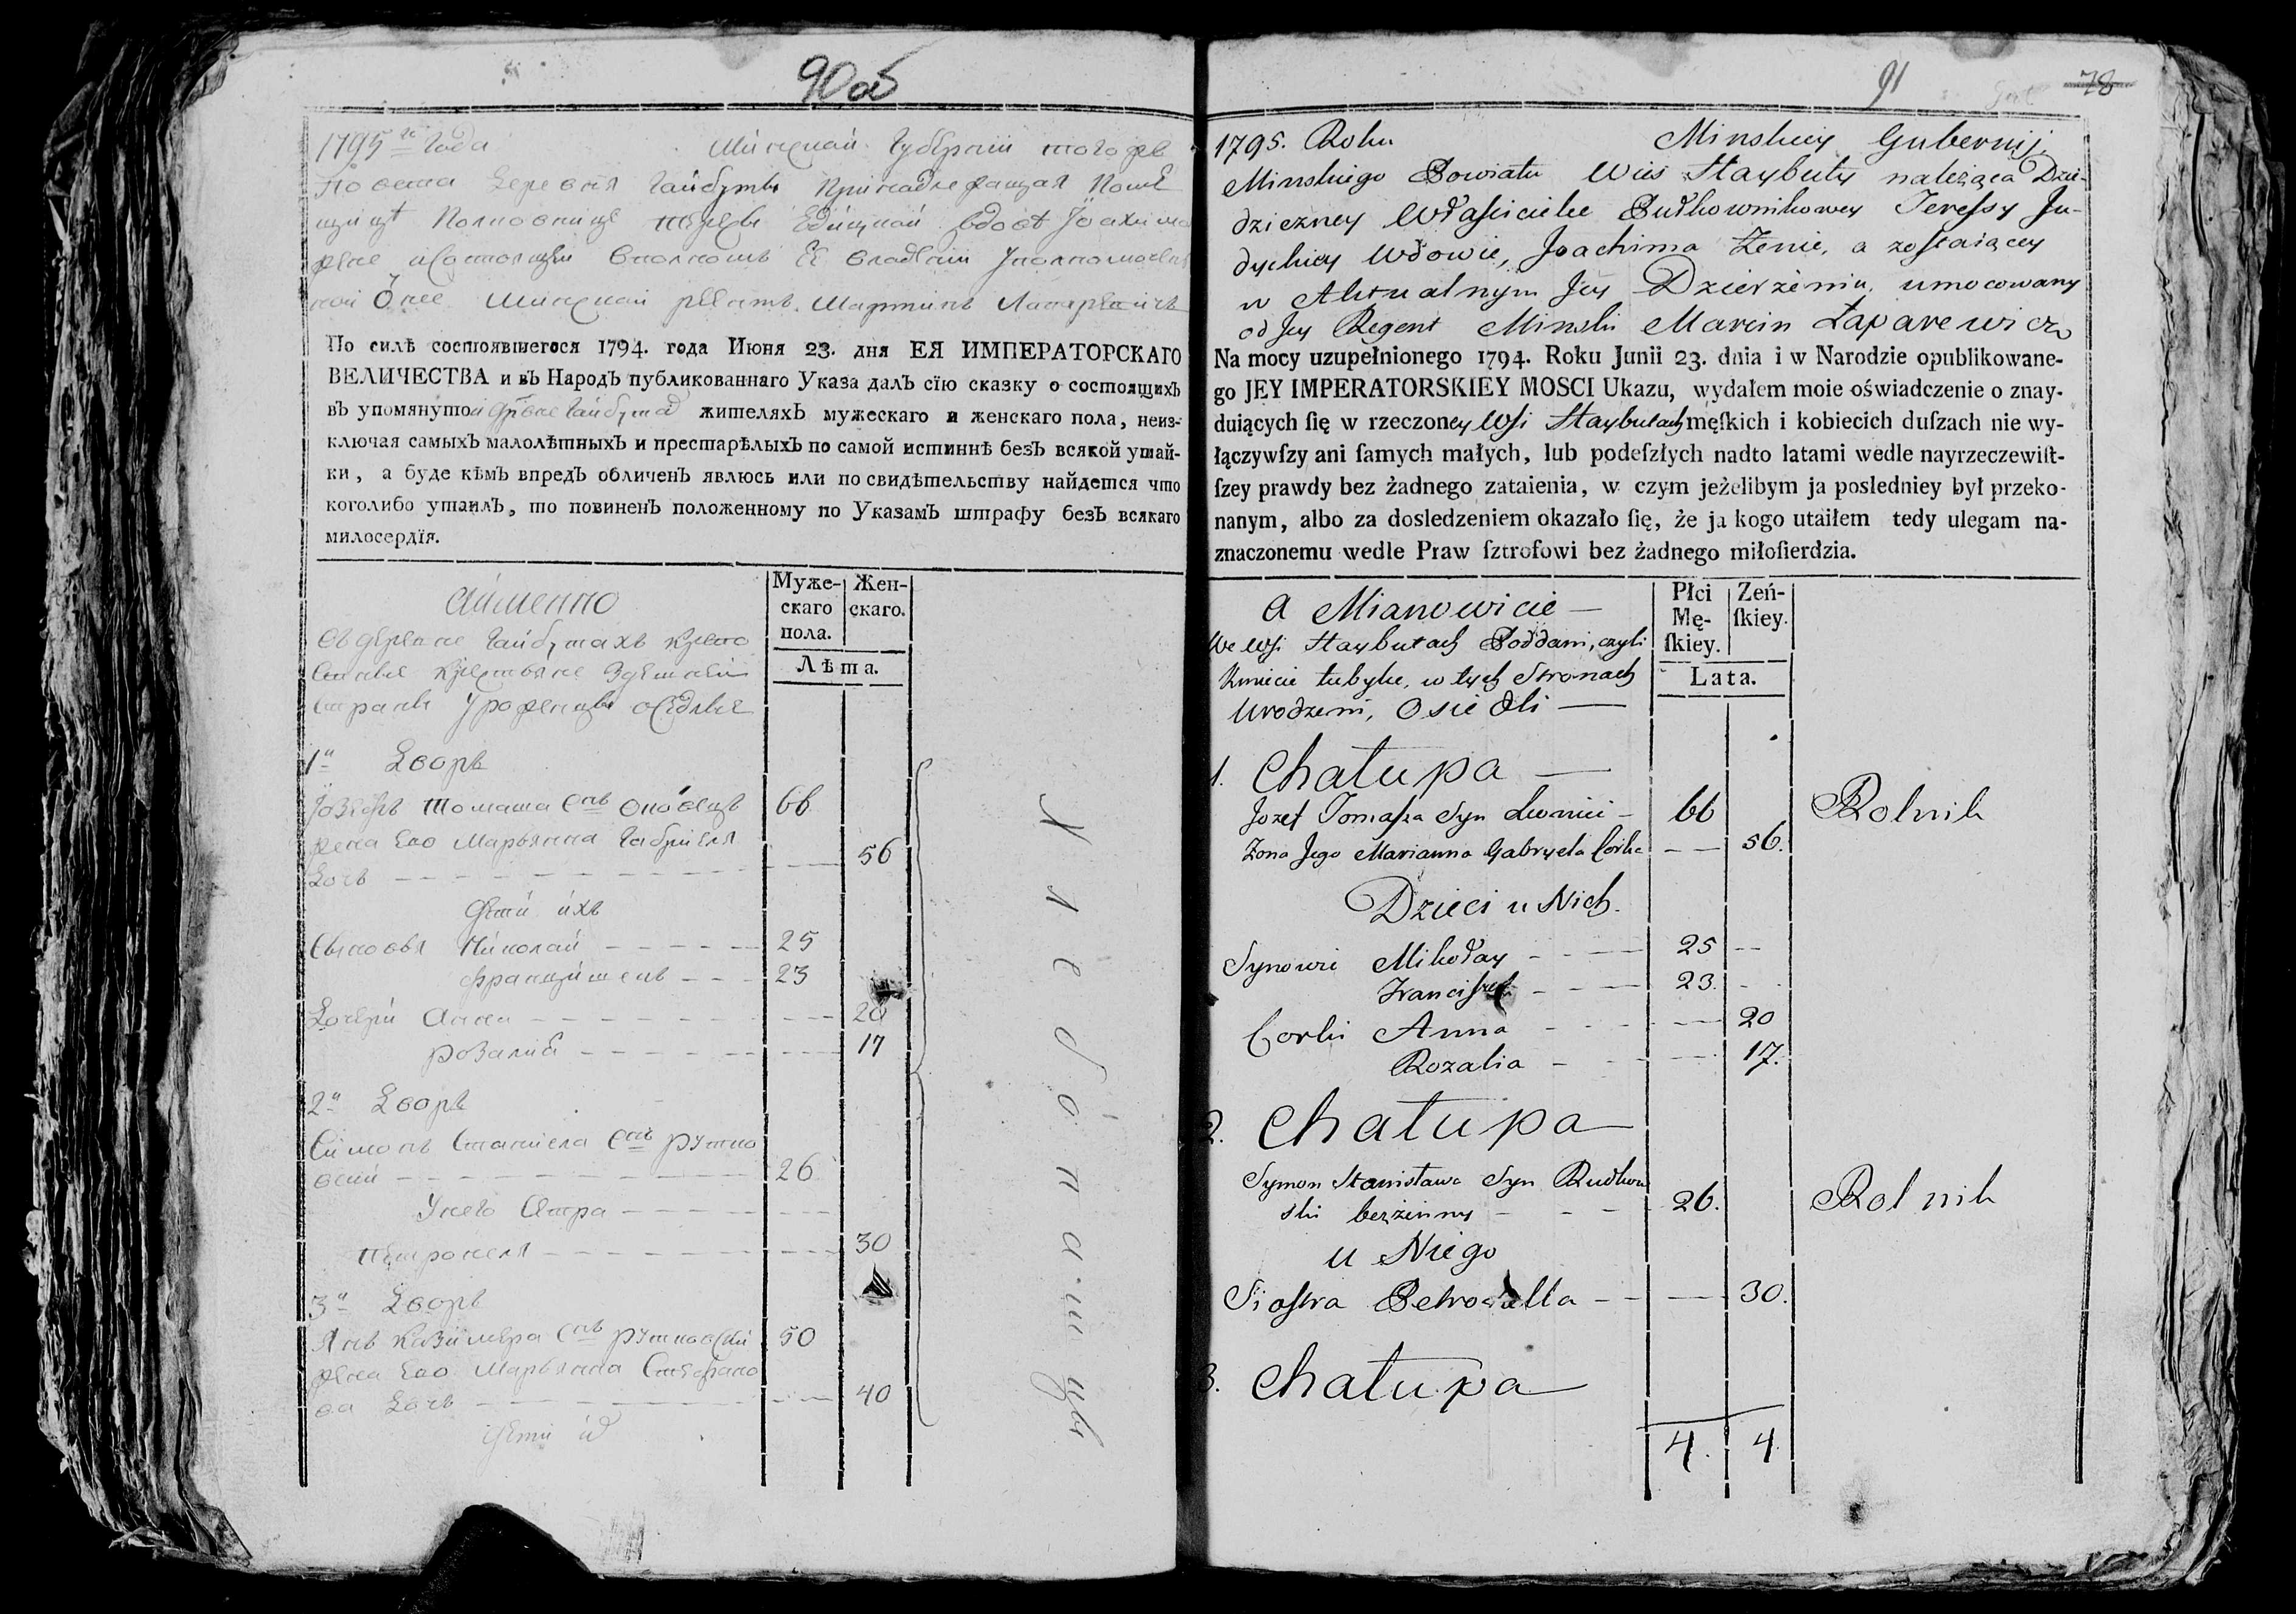 90 об
1795го Года Минской Губернии того же
Повета деревня Гайбуты принадлежащая Поме
щице Полковнице Терезе Юдицкой вдове Іоахима
жене и состоящей в полномъ Ее владении Уполномочен
ной Минской Регентъ Мартинъ Лапаревичъ
По силѣ состоявшегося 1794. года Июня 23. дня ЕЯ ИМПЕРАТОРСКАГО
ВЕЛИЧЕСТВА и въ Народъ публикованнаго Указа далъ сїю сказку о состоящихъ
въ упомянутой жителяхъ мужескаго и женскаго пола, неиз-
ключая самыхъ малолѣтныхъ и престарѣлыхъ по самой истиннѣ безъ всякой утай-
ки, а буде кѣмъ впредъ обличенъ явлюсь или по свидѣтельству найдется что
коголибо утаилъ, то повиненъ положенному по Указамъ штрафу безъ всякаго
милосердїя.
Муже-
скаго
пола.
Жен-
скаго.
Лѣта.
Аименно
въ деревне Гайбутахъ
крестьяне
Уроженцы оседлые
1й Дворъ
Іозефъ Томаша снъ 66
жена Его Марьянна Габриеля
дочь 56
Дети ихъ
Сыновья Николай 25
Францишекъ 23
Дочери Анна 20
Розалия 17
2й Дворъ
Симонъ Станислава снъ Рутко
вский 26
У него Сестра
Петронеля 30
3й Дворъ
Янъ Казимера снъ Рутковский 50
жена Его Марьянна Стефано
ва дочь 40
Дети их
Хлебопашцы
91
78
1795. Roku Minskiey Gubernij,
Minskiego Powiatu Wies Haybuty należąca Dzie-
dziczney Właſcicielce Pułkownikowey Tereſsy Ju-
dyckiey Wdowie, Joachima Żenie, a zoſtaiącey
w Aktualnym Jey Dzierżeniu, umocowany
od Jey Regent Minski Marcin Łaparewicz
Na mocy uzupełnionego 1794. Roku Junii 23. dnia i w Narodzie opublikowane-
go JEY IMPERATORSKIEY MOSCI Ukazu, wydałem moie oświadczenie o znay-
duiących ſię w rzeczoney Wſi Haybutach męſkich i kobiecich duſzach nie wy-
łączywſzy ani ſamych małych, lub podeſzłych nadto latami wedle nayrzeczewiſt-
ſzey prawdy bez żadnego zataienia, w czym jeżelibym ja posledniey był przeko-
nanym, albo za dosledzeniem okazało ſię, że ja kogo utaiłem tedy ulegam na-
znaczonemu wedle Praw ſztrofowi bez żadnego miłoſierdzia.
Płci
Mę-
ſkiey.
Zeń-
ſkiey.
Lata.
A Mianowicie —
We Wſi Haybutach Poddani, czyli
Kmiecie tubylce, w tych Stronach
Urodzeni, Osiedli —
1. Chałupa —
Jozef Tomaſza Syn 66 Rolnik
Żona Jego Marianna Gabryela Corka 56.
Dzieci u Nich.
Synowie Mikołay 25
Franciſzek 23.
Corki Anna 20
Rozalia 17.
2. Chałupa
Symon Stanisława Syn Rudkow
ski bezżenny 26. Rolnik
u Niego
Sioſtra Petronella 30.
3. Chałupa
4. 4.